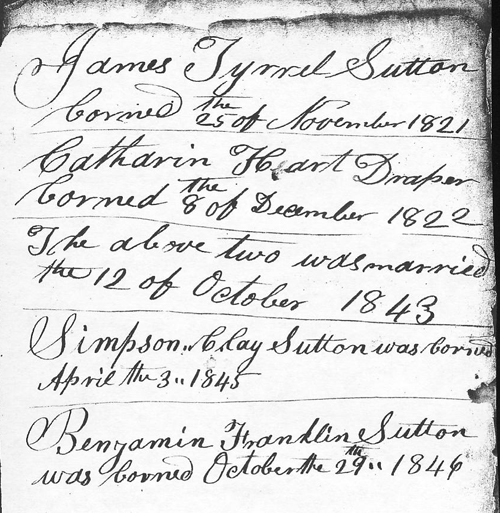 James Tyrrel Sutton
borned the 25 of November 1821
Catharin Heart Draper
borned the 8 of December 1822
The above two was married
the 12 of October 1843
Simpson.. Clay Sutton was borned
April the 3,, 1845
Benjamin Franklin Sutton
was borned October the 29th,, 1846